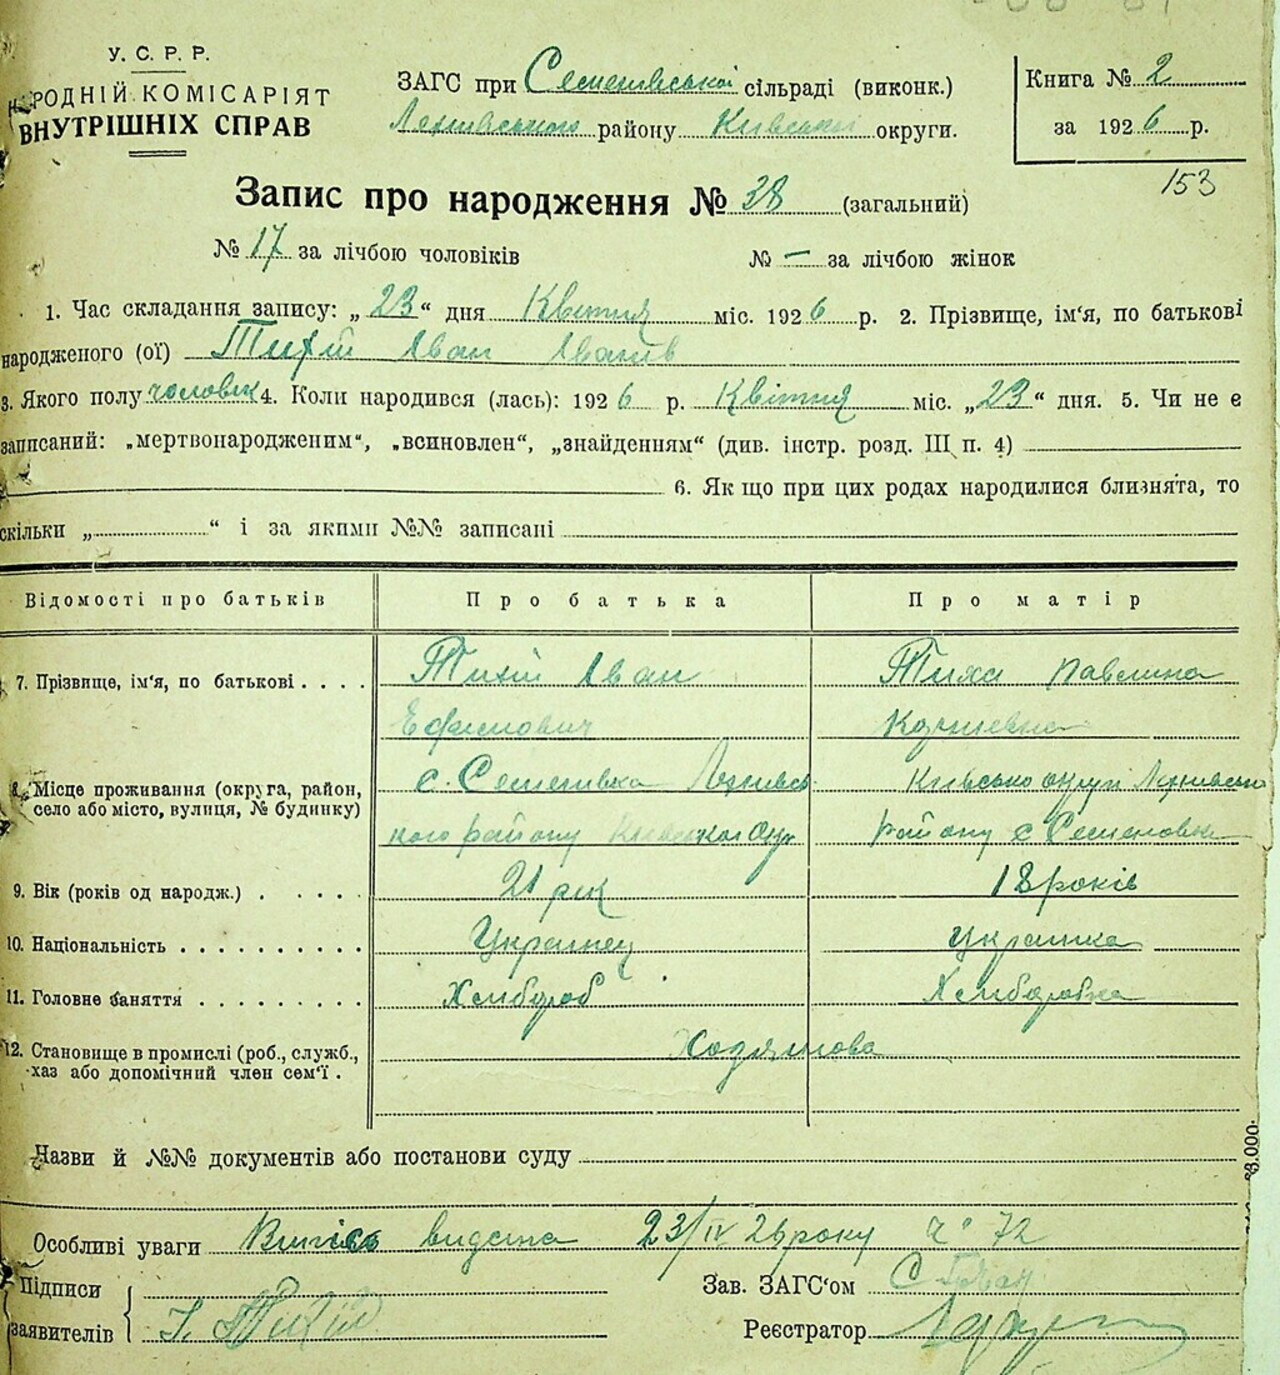 У. С. Р. Р.
НАРОДНІЙ КОМІСАРІЯТ
ВНУТРІШНІХ СПРАВ
ЗАГС при Семенівської сільраді (виконк.)
району Київської округи.
Книга № 2
за 1926 р.
153
Запис про народження № 38 (загальний)
№ 17 за лічбою чоловіків № — за лічбою жінок
1. Час складання запису: „23“ дня Квітня міс. 1926 р. 2. Прізвище, ім'я, по батькові
народженого (ої) Тихій Іван Іванів
3. Якого полу человек 4. Коли народився (лась): 1926 р. Квітня міс. „23“ дня. 5. Чи не є
записаний: „мертвонародженим“, „всиновлен“, „знайденням“ (див. інстр. розд. III п. 4)
6. Як що при цих родах народилися близнята, то
скільки „ “ і за якими №№ записані
Відомості про батьків Про батька Про матір
7. Прізвище, ім'я, по батькові . . . . Тихій Іван Тиха Павлина
Ефимович
8. Місце проживання (округа, район, с. Семенівка Київсько округи
село або місто, вулиця, № будинку)
кого району району с Семеновка
9. Вік (років од народж.) . . . . . 21 рік 18 років
10. Національність . . . . . . . . . . Украинец Украинка
11. Головне заняття . . . . . . . . . Хлібороб Хліборобка
12. Становище в промислі (роб., служб.,
хаз або допомічний член сем'ї .
Назви й №№ документів або постанови суду
Особливі уваги Випись видана 23/IV 26 року ч. 72
Підписи
заявителів І. Тихій
Зав. ЗАГС'ом
Реєстратор